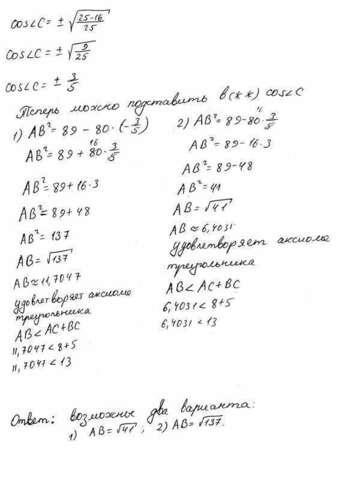 cos∠C = ± √(25-16/25)
cos∠C = ± √(9/25)
cos∠C = ± 3/5
Теперь можно подставить в (**) cos∠C
1) AB² = 89 - 80 · (-3/5)
AB² = 89 + 80 · 3/5
16
AB² = 89 + 16 · 3
AB² = 89 + 48
AB² = 137
AB = √137
AB ≈ 11,7047
удовлетворяет аксиоме
треугольника
AB < AC + BC
11,7047 < 8 + 5
11,7047 < 13
2) AB² = 89 - 80 · 3/5
16
AB² = 89 - 16 · 3
AB² = 89 - 48
AB² = 41
AB = √41
AB ≈ 6,4031
удовлетворяет аксиоме
треугольника
AB < AC + BC
6,4031 < 8 + 5
6,4031 < 13
Ответ: возможны два варианта:
1) AB = √41 ; 2) AB = √137.